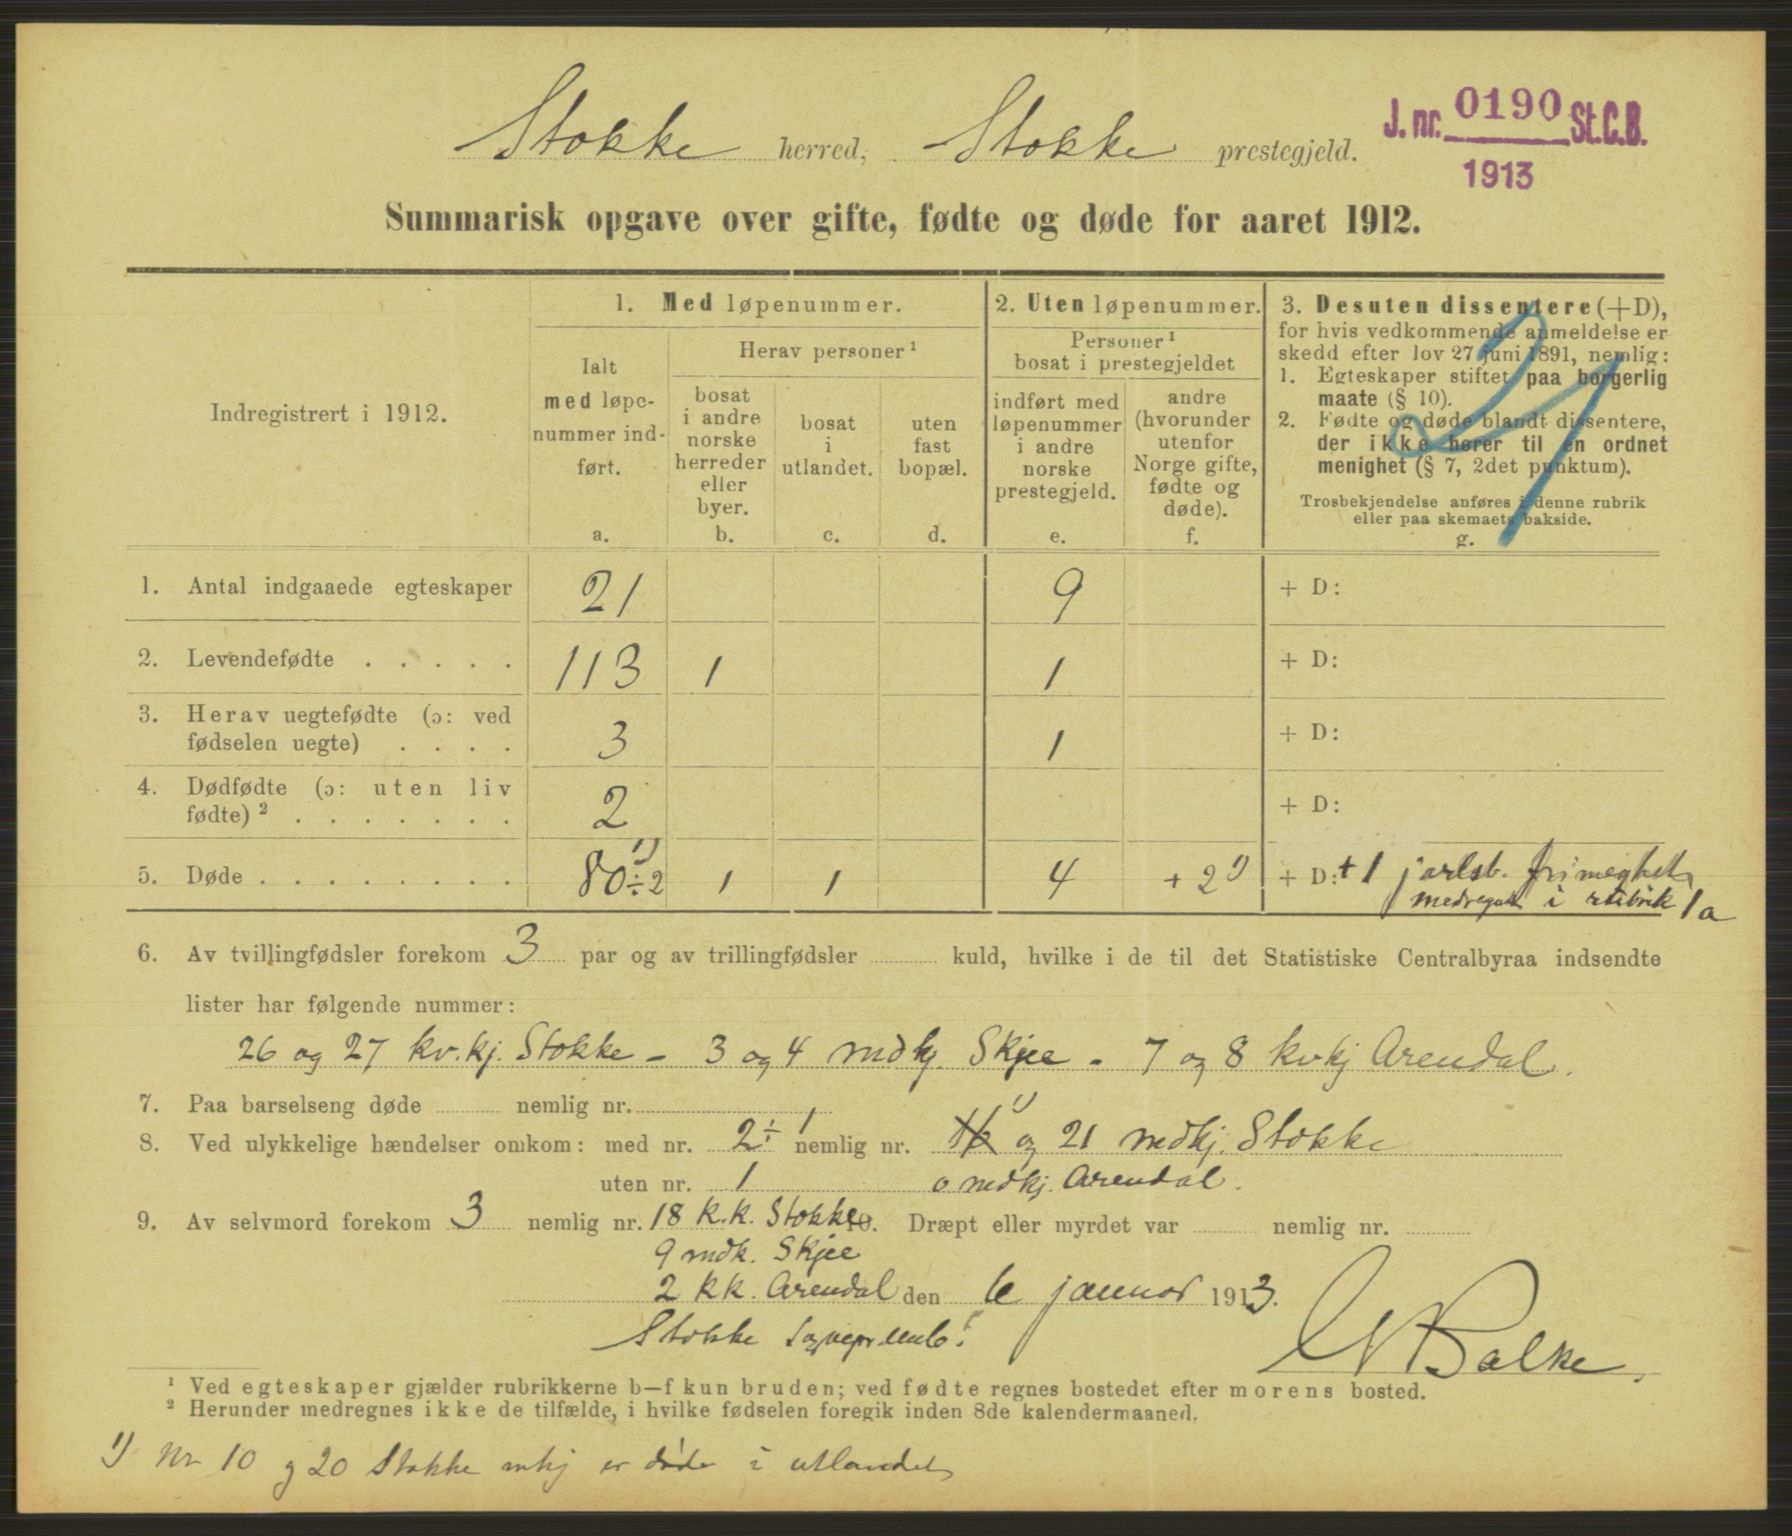 Stokke herred, Stokke prestegjeld.
J. nr. 0190 St.C.B.
1913
Summarisk opgave over gifte, fødte og døde for aaret 1912.
Indregistrert i 1912.
1. Med løpenummer.
Ialt med løpe-nummer ind-ført.
a.
Herav personer¹
bosat i andre norske herreder eller byer.
b.
bosat i utlandet.
c.
uten fast bopæl.
d.
2. Uten løpenummer.
Personer¹ bosat i prestegjeldet
indført med løpenummer i andre norske prestegjeld.
e.
andre (hvorunder utenfor Norge gifte, fødte og døde).
f.
3. Desuten dissentere (+D),
for hvis vedkommende anmeldelse er
skedd efter lov 27 juni 1891, nemlig:
1. Egteskaper stiftet paa borgerlig
maate (§ 10).
2. Fødte og døde blandt dissentere,
der ikke hører til en ordnet
menighet (§ 7, 2det punktum).
Trosbekjendelse anføres i denne rubrik
eller paa skemaets bakside.
g.
1. Antal indgaaede egteskaper 21 9 + D:
2. Levendefødte . . . . . 113 1 1 + D:
3. Herav uegtefødte (ɔ: ved
fødselen uegte) . . . . 3 1 + D:
4. Dødfødte (ɔ: uten liv
fødte)² . . . . . . . 2 + D:
5. Døde . . . . . . . . 80 ÷ 2 ¹) 1 1 4 + 2 ¹) + D: + 1 jarlsb. frimeghet
medregnet i rubrik 1a
6. Av tvillingfødsler forekom 3 par og av trillingfødsler kuld, hvilke i de til det Statistiske Centralbyraa indsendte
lister har følgende nummer:
26 og 27 kv.kj. Stokke - 3 og 4 mdkj. Skjee - 7 og 8 kvkj Arendal.
7. Paa barselseng døde nemlig nr.
8. Ved ulykkelige hændelser omkom: med nr. 2 ÷ 1 nemlig nr. ¹) og 21 mdkj. Stokke
uten nr. 1 o mdkj. Arendal.
9. Av selvmord forekom 3 nemlig nr. 18 K.K. Stokke 10. Dræpt eller myrdet var nemlig nr.
9 mdk. Skjee
2 KK. Arendal den 6 januar 1913.
Stokke
N Balke.
¹ Ved egteskaper gjælder rubrikkerne b—f kun bruden; ved fødte regnes bostedet efter morens bosted.
² Herunder medregnes ikke de tilfælde, i hvilke fødselen foregik inden 8de kalendermaaned.
¹) Nr 10 og 20 Stokke mkj er døde i utlandet